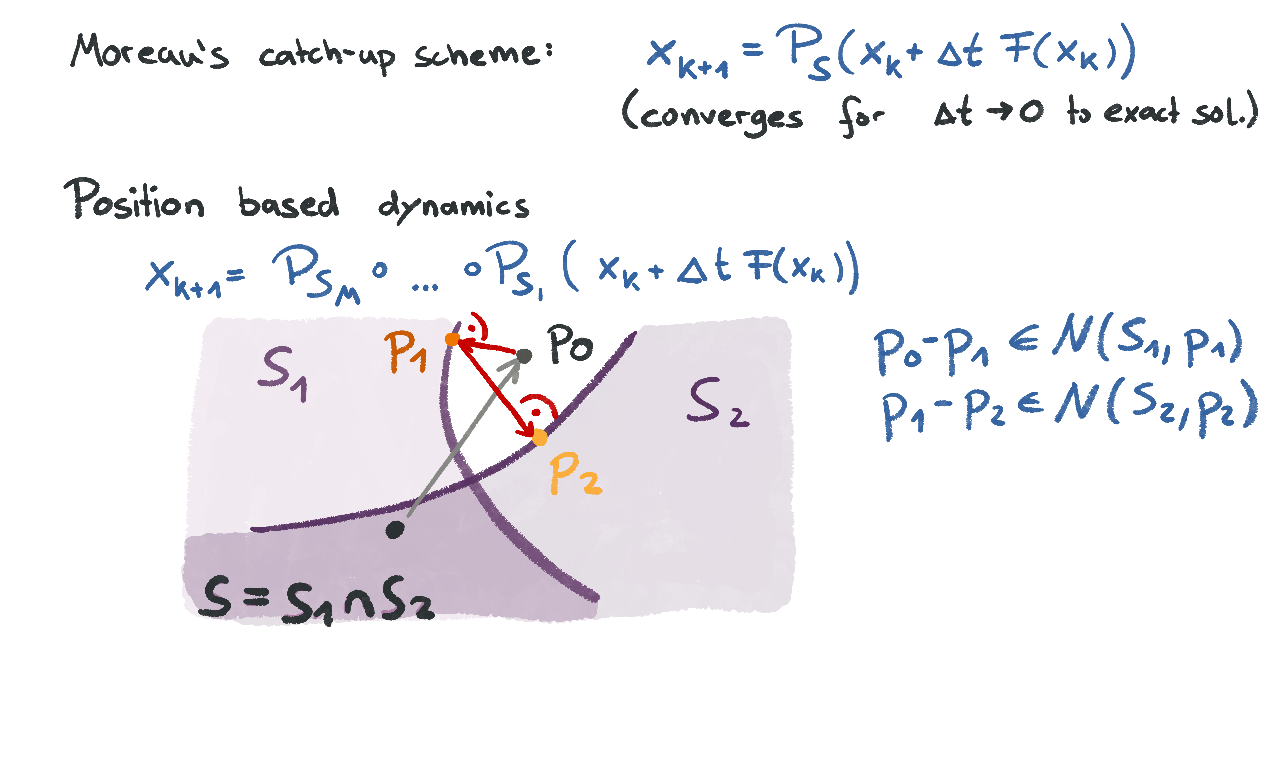 Moreau's catch-up scheme: x_{k+1} = P_S(x_k + Δt F(x_k))
(converges for Δt → 0 to exact sol.)
Position based dynamics
x_{k+1} = P_{S_M} ∘ ... ∘ P_{S_1} (x_k + Δt F(x_k))
P1 P0
p_0 - p_1 ∈ N(S_1, p_1)
S_1 S_2
p_1 - p_2 ∈ N(S_2, p_2)
P2
S = S_1 ∩ S_2